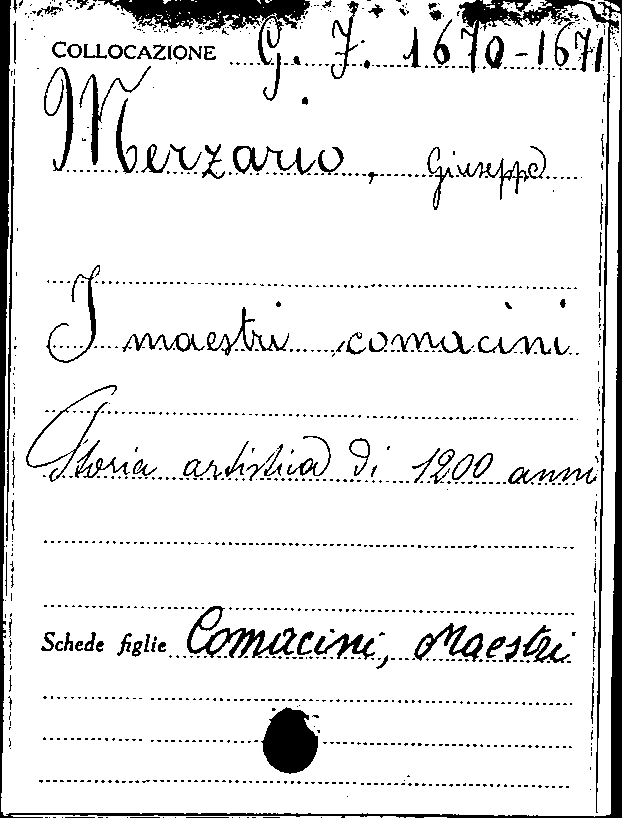 COLLOCAZIONE G. J. 1670-1671
Merzario, Giuseppe
I maestri comacini
Storia artistica di 1200 anni
Schede figlie Comacini, Maestri